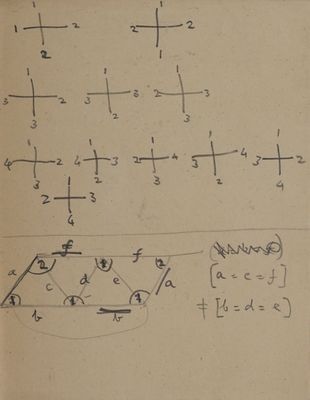 1 1
1 2 2 2
2 1
1 1 1
3 2 3 3 2 3
3 2 3
1 1 1 1 1
4 2 4 3 2 4 3 4 3 2
3 2 3 2 4
1
2 3
4
f f
a 2 2 2
c d e a [a = c = f]
1 1 1 ≠ [b = d = e]
b b